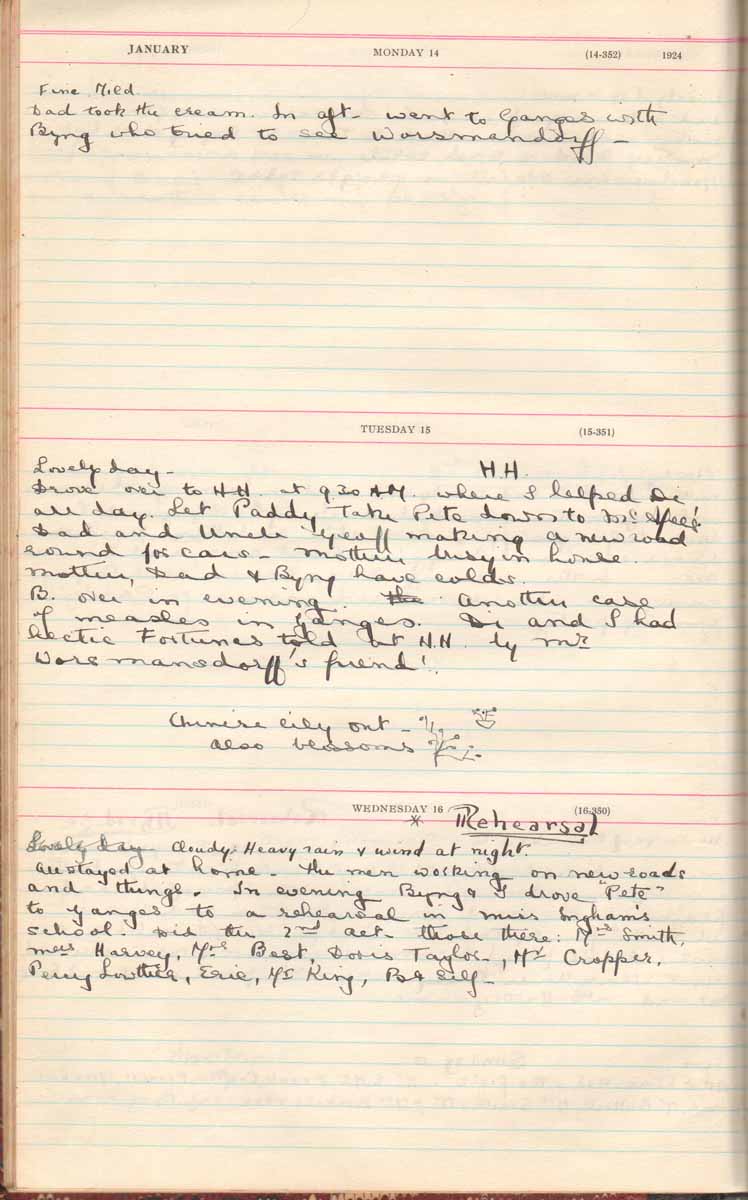 JANUARY MONDAY 14 (14-352) 1924
Fine Mild.
Dad took the cream. In aft- went to Ganges with
Byng who tried to see Worsmansdorff –
TUESDAY 15 (15-351)
Lovely day – H.H.
Drove over to H.H. at 9.30 AM. where I helped Di
all day. Let Paddy take Pete down to
Dad and Uncle Geoff making a new road
round for cars – Mother busy in house.
Mother, Dad & Byng have colds.
B. over in evening. the Another case
of measles in Ganges. Di and I had
Fortunes told at H.H. by Mr
Worsmansdorff's friend!
Chinese lily out –
also blossoms
WEDNESDAY 16 (16-350)
* Rehearsal
Lovely Day Cloudy. Heavy rain & wind at night.
All stayed at home – The men working on new roads
and things. In evening Byng & I drove "Pete"
to Ganges to a rehearsal in Miss Ingham's
school. Did the 2nd act. Those there: Mrs Smith,
Mrs Harvey, Mrs Best, Doris Taylor, Mr Cropper,
Percy Lowther, Eric, Mr King, B & Self –